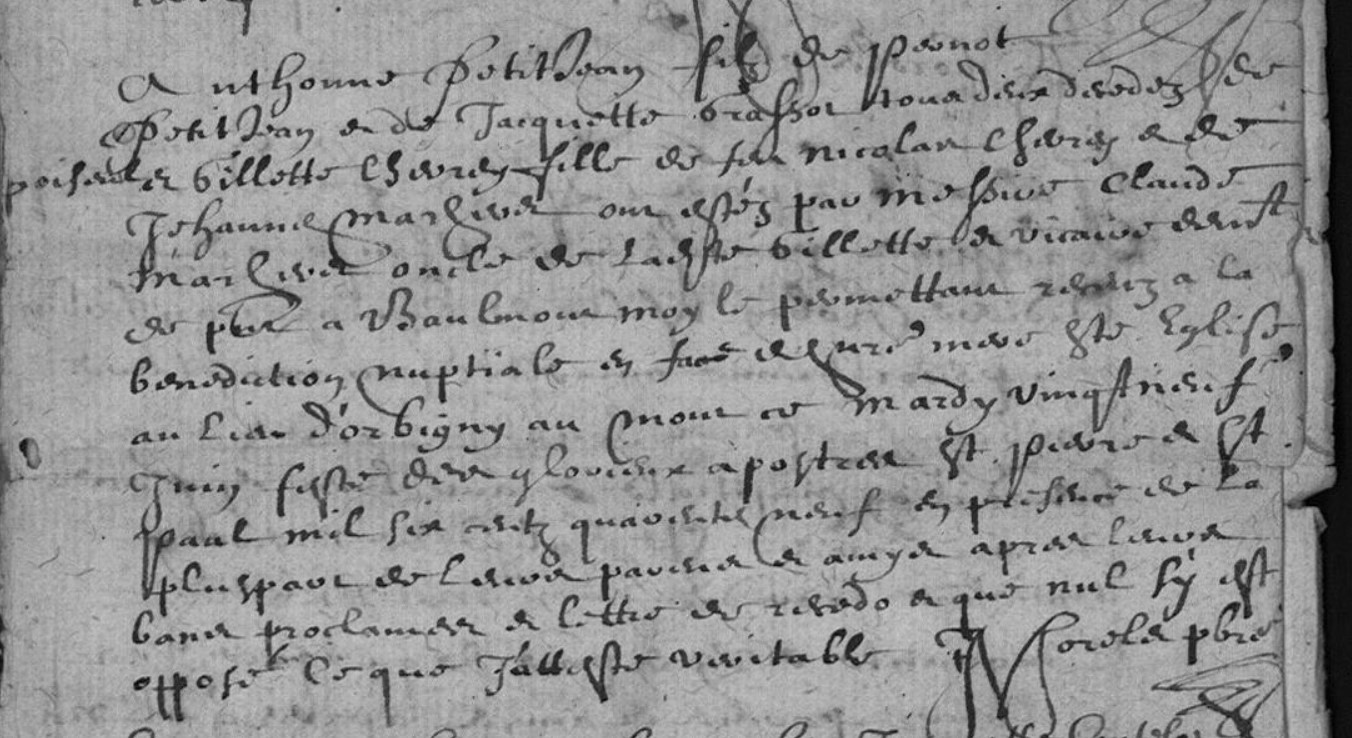 Anthonne Petitjean filz de Pernot
Petitjean et de Jacquette Grassot tous deux decedez de
poiseul et Gillette Chevrey fille de feu Nicolas Chevrey et de
Jehanne Marhivet ont estéz par messire Claude
Marhivet oncle de ladste Gillette et vicaire
de a moy le permettant receuz a la
benediction nuptiale en face de nre mere Ste Eglise
au lieu d'orbigny au mont ce mardy vingtneuf
Juin feste des glorieux apostres St Pierre et St
Paul mil six centz quarente neuf en presence de la
pluspart de leurs parens et amys apres leurs
bans proclamez et lettre de recedo et que nul sy est
opposé Ce que J'atteste veritable pbre